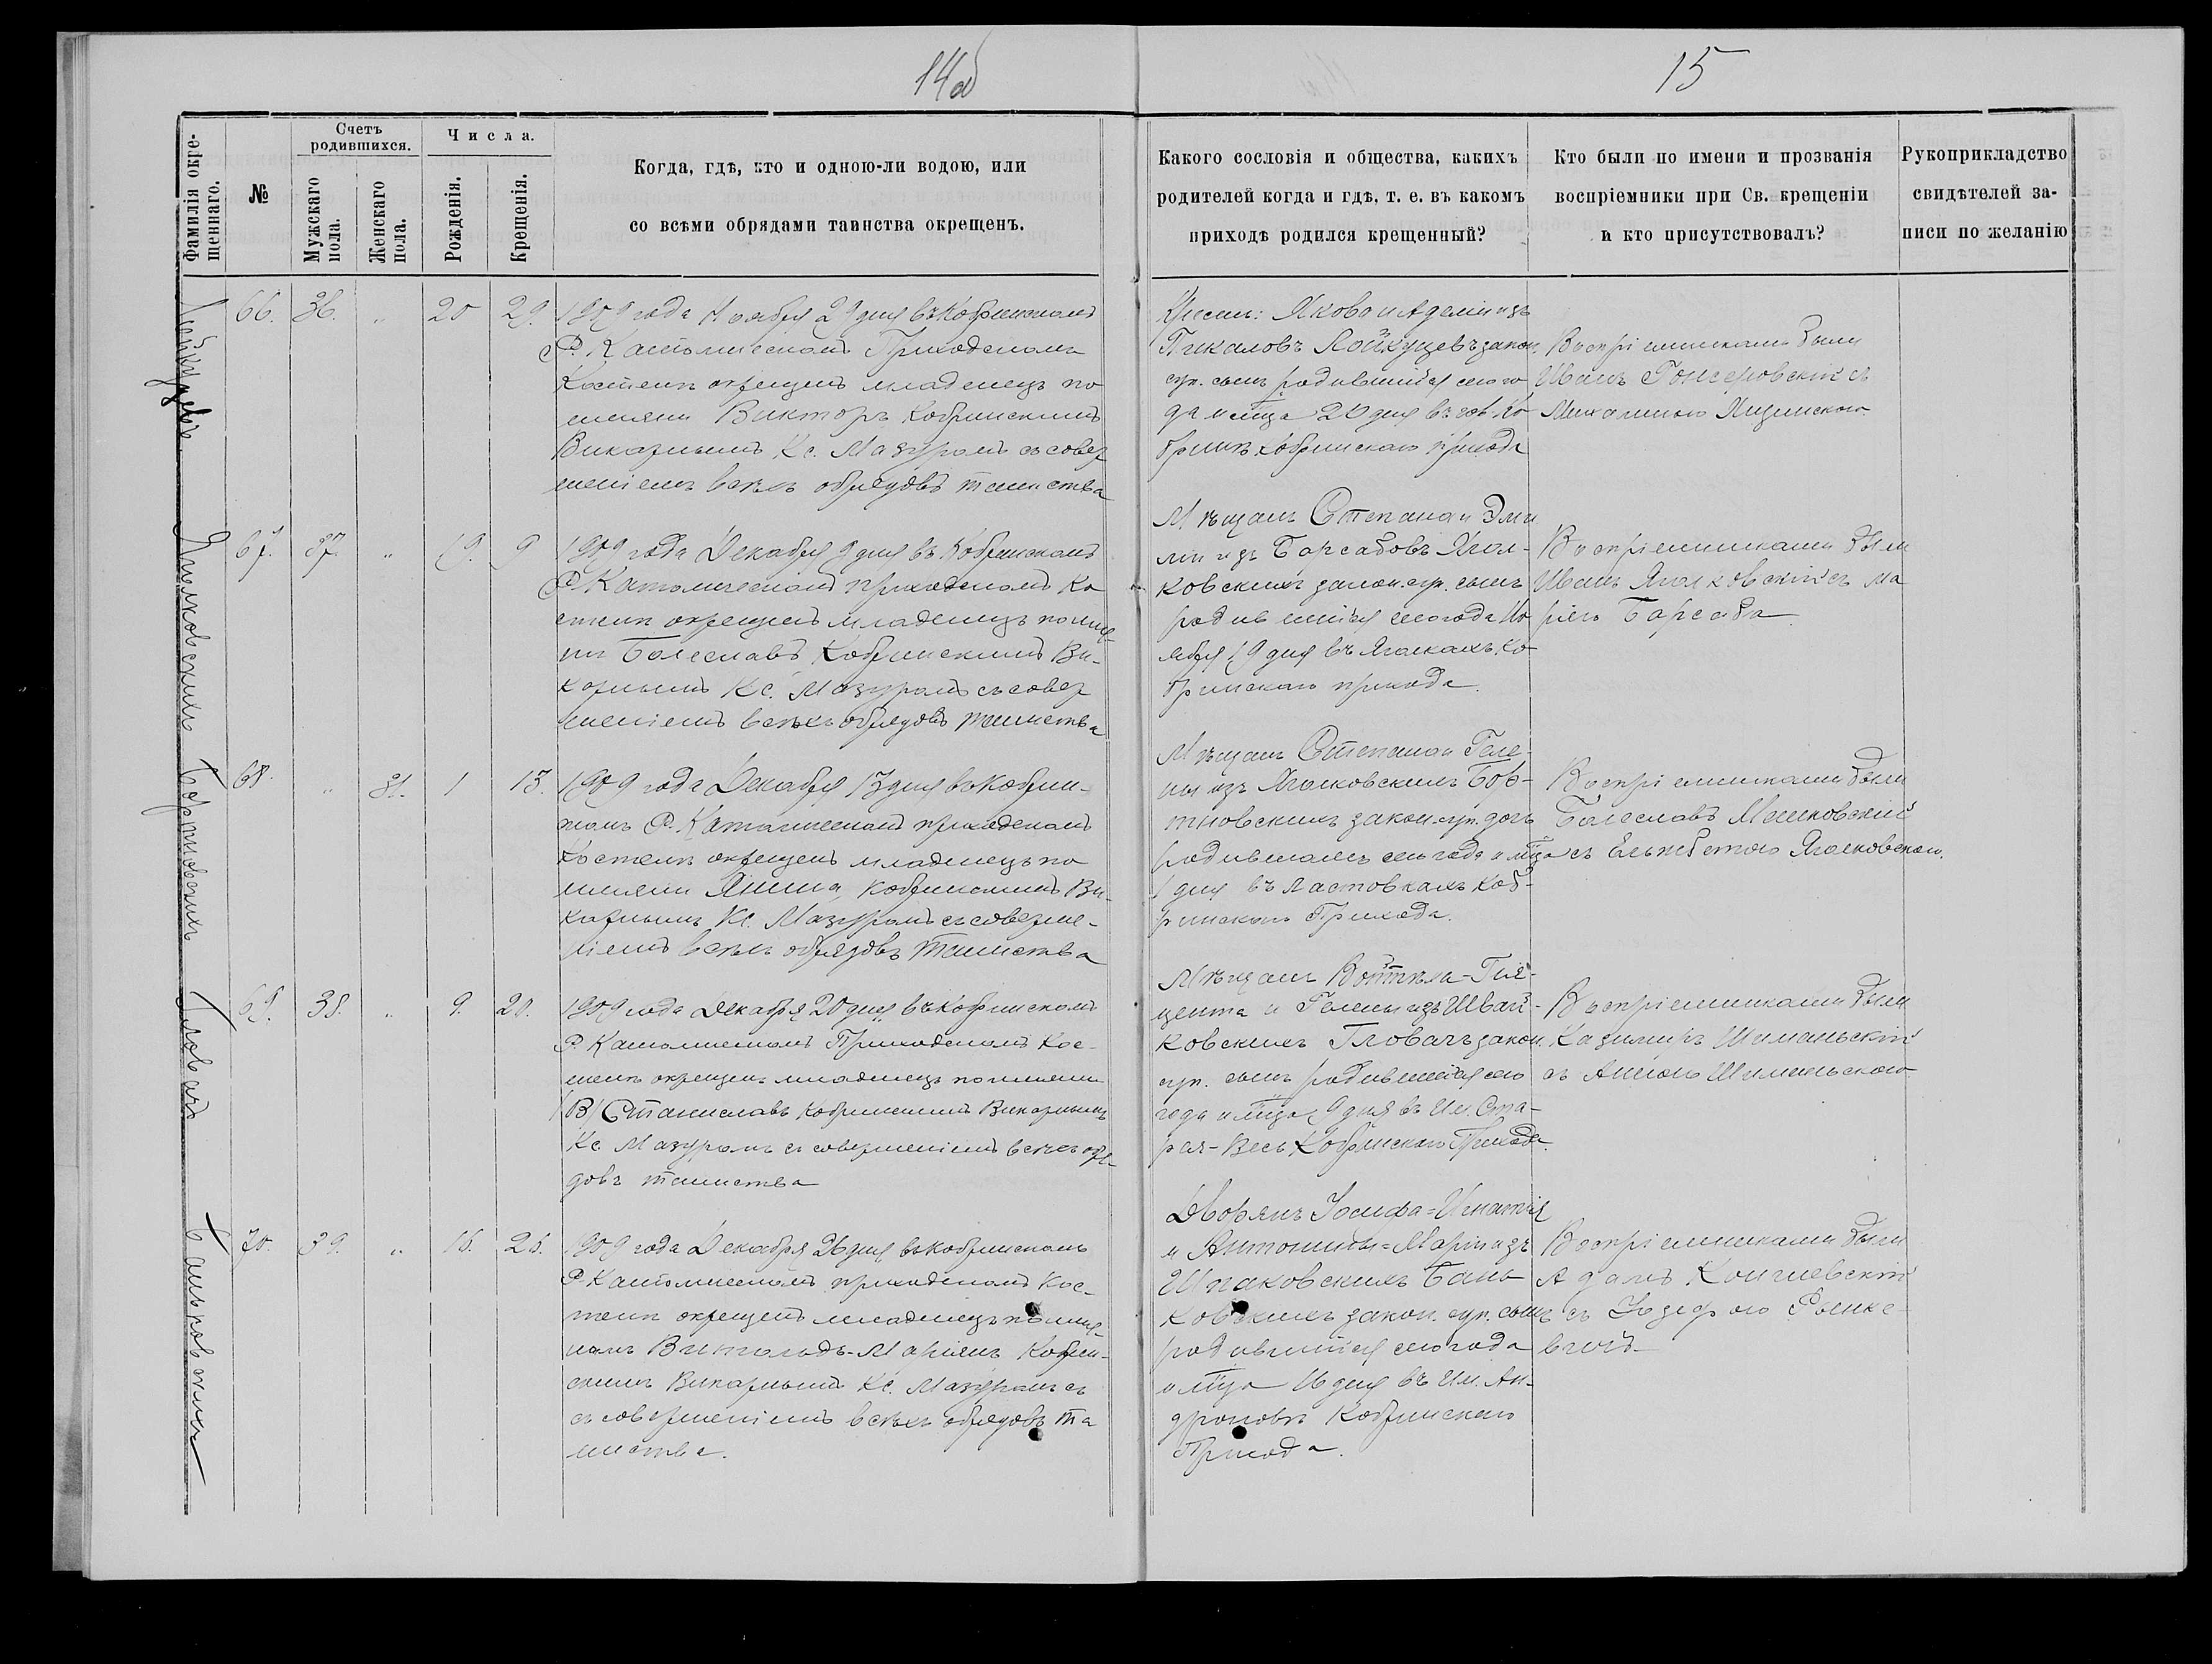 14об
15
Фамилія окре-
щеннаго.
№
Счетъ
родившихся.
Мужскаго
пола.
Женскаго
пола.
Числа.
Рожденія.
Крещенія.
Когда, гдѣ, кто и одною-ли водою, или
со всѣми обрядами таинства окрещенъ.
Какого сословія и общества, какихъ
родителей когда и гдѣ, т. е. въ какомъ
приходѣ родился крещенный?
Кто были по имени и прозванія
воспріемники при Св. крещеніи
и кто присутствовалъ?
Рукоприкладство
свидѣтелей за-
писи по желанію
66. 36. „ 20 29.
1909 года Ноября 29 дня въ Кобринскомъ
Р. Католическомъ Приходскомъ
Костелѣ окрещенъ младенецъ по
имени Викторъ Кобринскимъ
Викарнымъ Кс. Мазуромъ съ совер
шеніемъ всѣхъ обрядовъ таинства
Якова и Аделіи изъ
Пикаловъ закон.
суп. сынъ родившійся сего го
да и мѣца 20 дня въ гор. Ко
бринѣ Кобринскаго прихода
Воспріемниками были
Иванъ съ
Ягелковскихъ
67. 37. „ 19. 9
1909 года Декабря 9 дня въ Кобринскомъ
Р. Католическомъ приходскомъ Ко
стелѣ окрещенъ младенецъ по име
ни Болеславъ Кобринскимъ Ви-
карнымъ Кс. Мазуромъ съ совер
шеніемъ всѣхъ обрядовъ таинства
Мѣщанъ Степана и Эми
ліи изъ Барсабовъ Ягел-
ковскихъ закон. суп. сынъ
родившійся сего года Но
ября 19 дня въ Ко-
бринскаго прихода.
Воспріемниками были
Иванъ Ягелковскій съ Ма
ріею Барсаба
Бортновскихъ
68. „ 31. 1 13.
1909 года Декабря 13 дня въ Кобрин-
скомъ Р. Католическомъ приходскомъ
Костелѣ окрещенъ младенецъ по
имени Янина, Кобринскимъ Ви-
карнымъ Кс. Мазуромъ съ соверше-
ніемъ всѣхъ обрядовъ таинства
Мѣщанъ Степана и Геле-
ны изъ Ягелковскихъ Бор-
тновскихъ закон. суп. дочь
родившаяся сего года и мѣца
1 дня въ Ластовкахъ Коб-
ринскаго Прихода.
Воспріемниками были
Болеславъ
съ Ельжбетою Ягелковскою.
Гловачъ
69. 38. „ 9. 20.
1909 года Декабря 20 дня въ Кобринскомъ
Р. Католическомъ Приходскомъ Кос-
телѣ окрещенъ младенецъ по имени
(В) Станиславъ Кобринскимъ Викарнымъ
Кс. Мазуромъ съ совершеніемъ всѣхъ обря-
довъ таинства
Мѣщанъ
и Гелены изъ
ковскихъ Гловачъ закон.
суп. сынъ родившійся сего
года и мѣца 9 дня въ им. Ста-
рая-Весь Кобринскаго Прихода.
Воспріемниками были
Казимиръ Шиманьскій
съ Анною Шиманьскою
Баньковскихъ
70. 39. „ 16. 26.
1909 года Декабря 26 дня въ Кобринскомъ
Р. Католическомъ приходскомъ Кос-
телѣ окрещенъ младенецъ по име-
намъ Витольдъ-Маріянъ Кобрин-
скимъ Викарнымъ Кс. Мазуромъ съ
съ совершеніемъ всѣхъ обрядовъ та
инства.
Дворянъ Іосифа=Игнатія
и Антонины=Маріи изъ
Шпаковскихъ Бань
ковскихъ закон. суп. сынъ
родившійся сего года
и мѣца 16 дня въ им. Ан-
дроновѣ Кобринскаго
Прихода.
Воспріемниками были
Адамъ
съ Юзефою